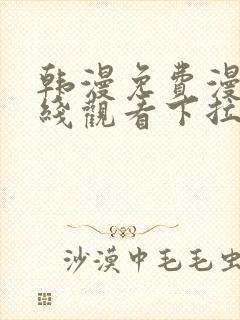 韩漫免費漫
綫觀看下拉
沙漠中毛毛虫